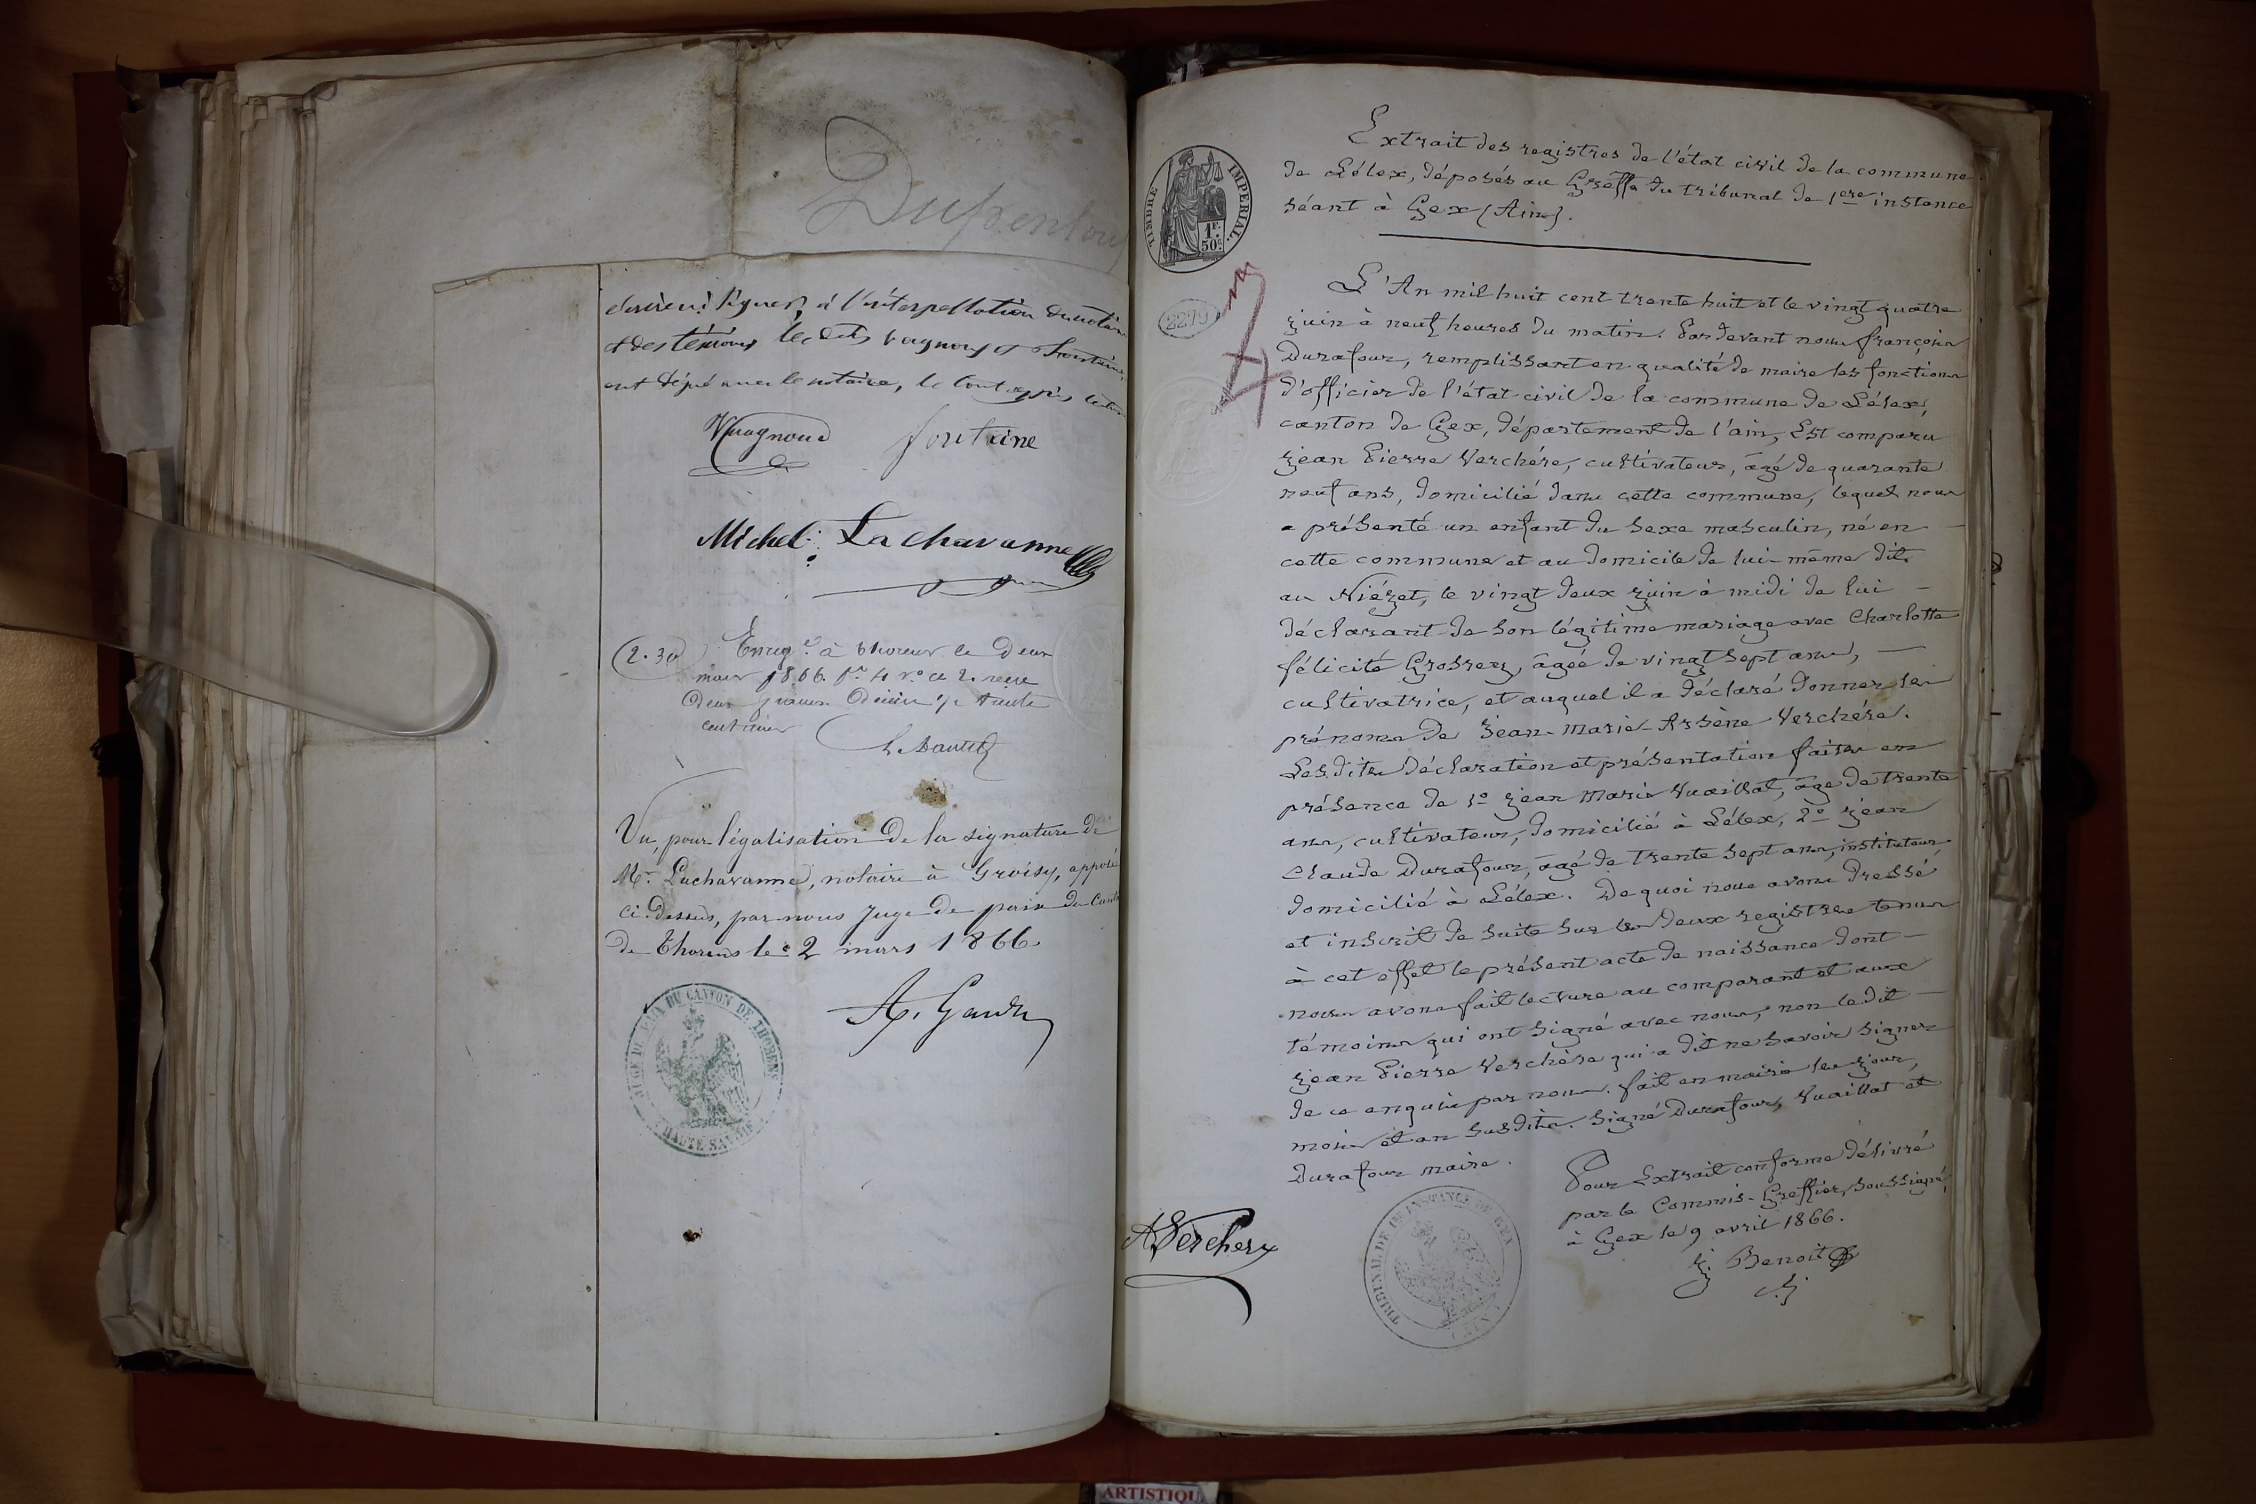 Dupenloup
signer, à l'interpellation du notaire
et des témoins, les dits Vuagnoux et Fontaine,
ont signé avec le notaire, le tout après lecture
Vuagnoud
fontaine
Michel Lachavanne
(2.30)
Enreg.é à thorens le deux
mars 1866. f.o 4 v.o c.e 2. reçu
deux francs décime 1/2 trente
centimes
Vu, pour légalisation de la signature de
Mr. Lachavanne, notaire à Groisy, apposée
ci-dessus, par nous Juge de paix du Canton
de Thorens le 2 mars 1866
JUGE DE PAIX DU CANTON DE THORENS
HAUTE SAVOIE
TIMBRE IMPERIAL.
1F.
50c.
2279
Extrait des registres de l'état civil de la commune
de Lélex, déposés au Greffe du tribunal de 1ere instance
séant à Gex (Ain).
L'An mil huit cent trente huit et le vingt quatre
juin à neuf heures du matin. Pardevant nous françois
Durafour, remplissant en qualité de maire les fonctions
d'officier de l'état civil de la commune de Lélex,
canton de Gex, département de l'ain, Est comparu
jean Pierre Verchère, cultivateur, âgé de quarante
neuf ans, domicilié dans cette commune, lequel nous
a présenté un enfant du sexe masculin, né en
cette commune et au domicile de lui-même dit
au Niézet, le vingt deux juin à midi de lui
déclarant de son légitime mariage avec Charlotte
félicité Grosrey, âgée de vingt sept ans,
cultivatrice, et auquel il a déclaré donner les
prénoms de jean-Marie-Arsène Verchère.
Les dites déclaration et présentation faites en
présence de 1o jean Marie Vuaillat, âgé de trente
ans, cultivateur, domicilié à Lélex, 2o jean
claude Durafour, âgé de trente sept ans, instituteur,
domicilié à Lélex. De quoi nous avons dressé
et inscrit de suite sur les deux registres tenus
à cet effet le présent acte de naissance dont
nous avons fait lecture au comparant et aux
témoins qui ont signé avec nous, non ledit
jean Pierre Verchère qui a dit ne savoir signer
de ce enquis par nous. fait en mairie les jour,
mois et an susdits. Signé Durafour, Vuaillat et
Durafour maire.
Pour Extrait conforme délivré
par le Commis-Greffier soussigné,
à Gex le 9 avril 1866.
j Benoit
A Verchere
TRIBUNAL DE 1RE INSTANCE DE GEX
(AIN)
ARTISTIQU